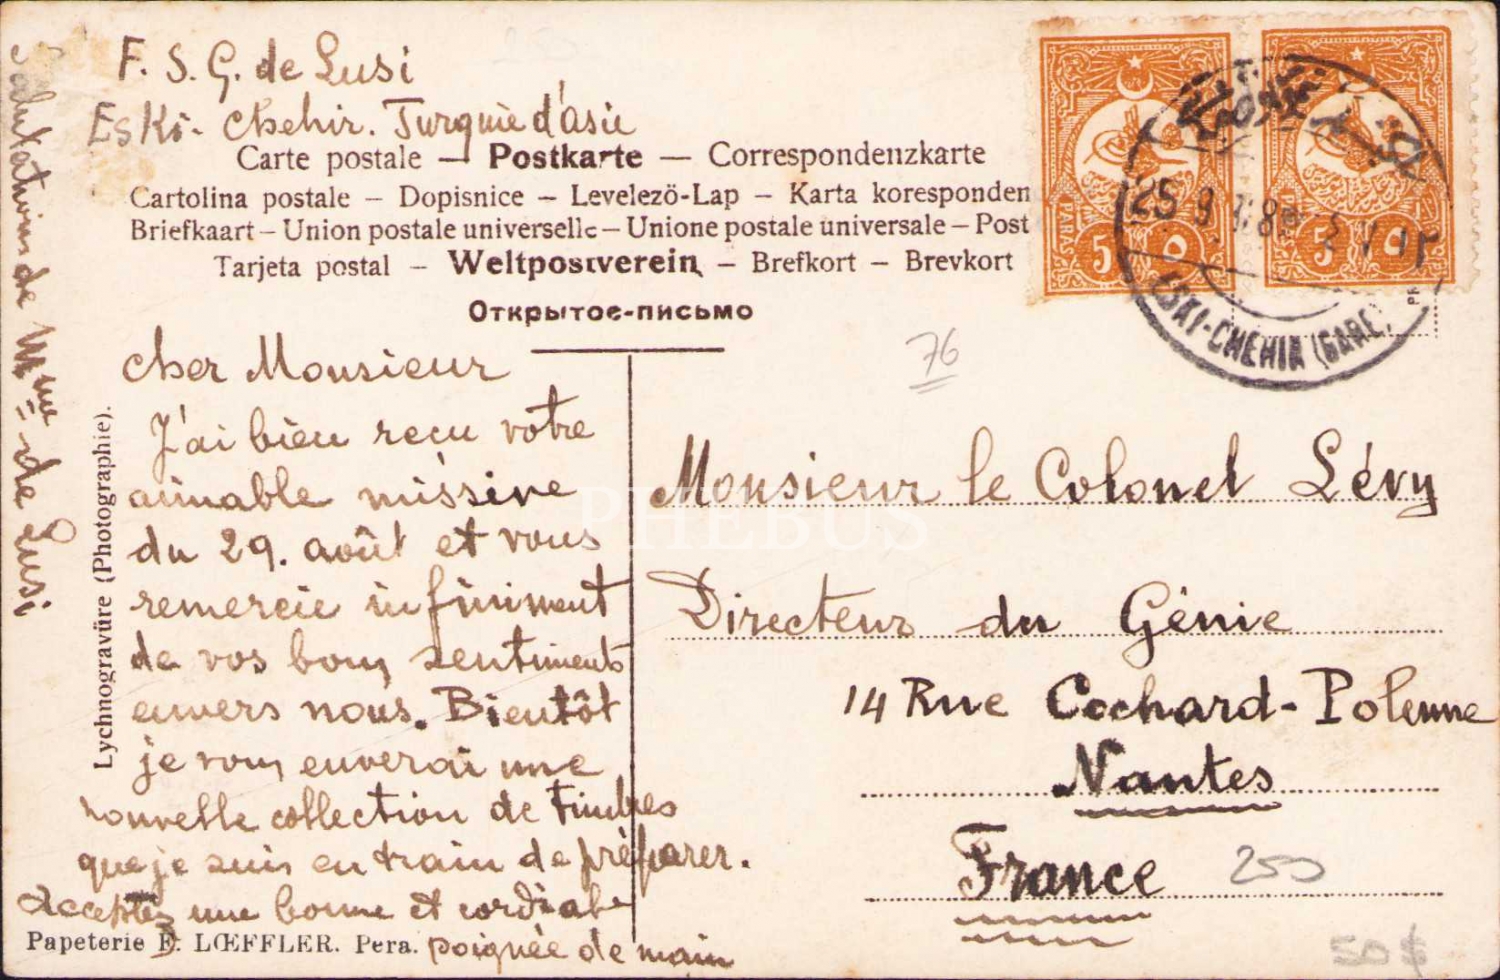 F. S. G. de Lusi
Eski-Chehir. Turquie d'asie
Carte postale — Postkarte — Correspondenzkarte
Cartolina postale – Dopisnice – Levelezö-Lap – Karta koresponden
Briefkaart – Union postale universelle – Unione postale universale – Post
Tarjeta postal – Weltpostverein – Brefkort – Brevkort
Открытое-письмо
PARAS 5 ٥
5 ٥
25 9
ESKI-CHEHIR (GARE)
76
Cher Monsieur
J'ai bien reçu votre
aimable missive
du 29. août et vous
remercie infiniment
de vos bons sentiments
envers nous. Bientôt
je vous enverai une
nouvelle collection de timbres
que je suis en train de préparer.
Acceptez une bonne et cordiale
poignée de main
Salutations de Mme de Lusi
Lychnogravüre (Photographie).
Papeterie E. LŒFFLER. Pera.
Monsieur le Colonel Lévy
Directeur du Génie
14 Rue Cochard-Polenne
Nantes
France
250
50 $
PHEBUS